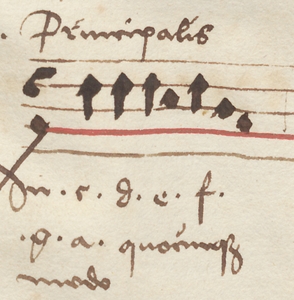 Principalis
In · c · d · e · f ·
· g · a · quocumqꝫ
modo